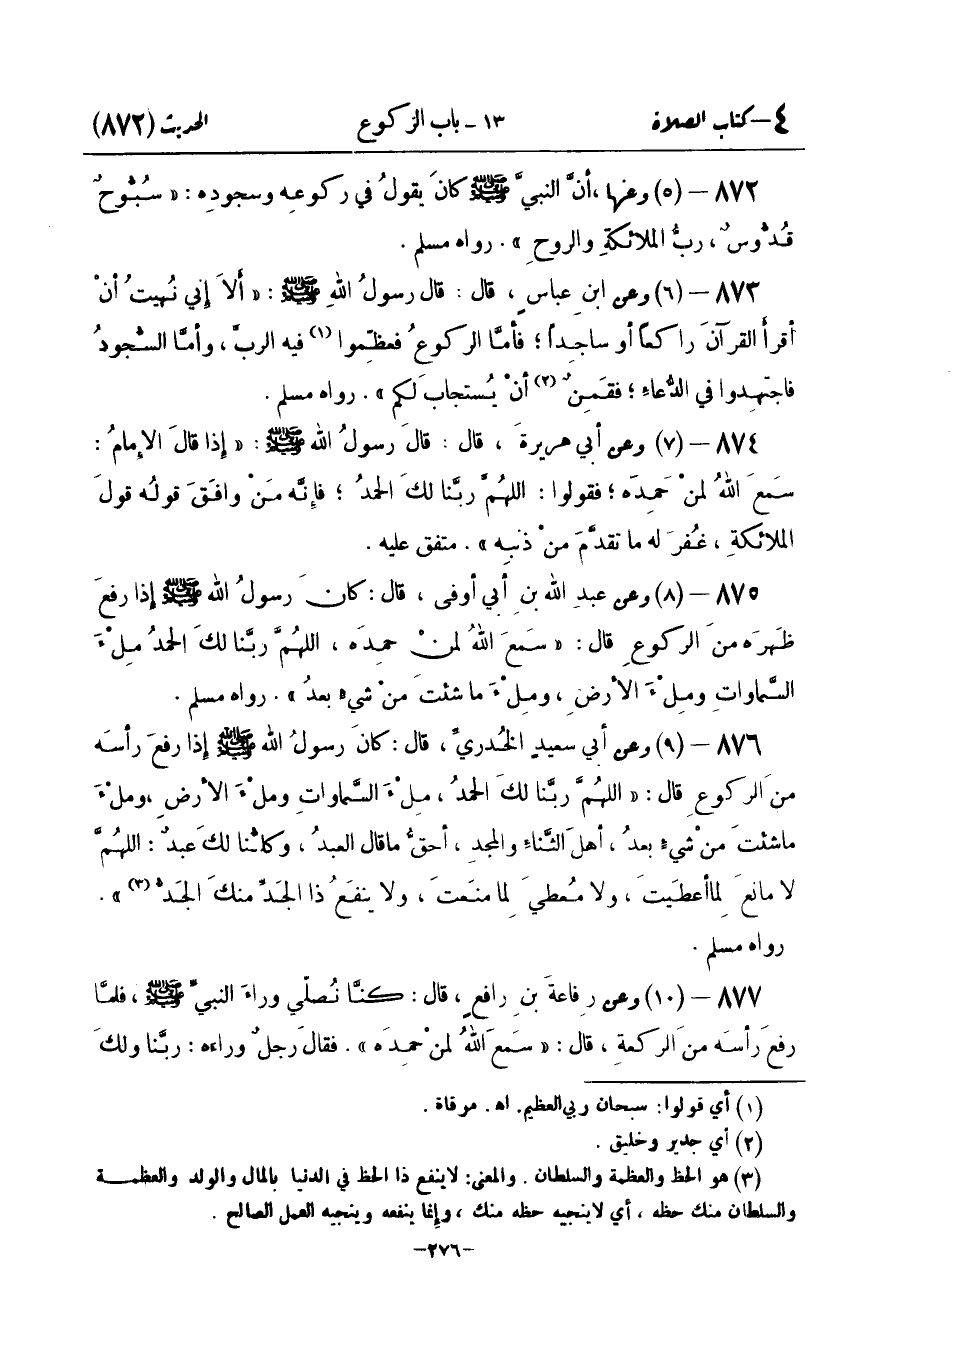 ٤ – كتاب الصلاة
١٣ – باب الركوع
الحديث (٨٧٢)
٨٧٢ – (٥) وعنها ، أنَّ النبيَّ ﷺ كانَ يقولُ في ركوعِه وسجودِه : « سُبُّوحٌ
قُدُّوسٌ ، ربُّ الملائكةِ والروحِ » . رواه مسلم .
٨٧٣ – (٦) وعن ابنِ عباسٍ ، قال : قال رسولُ اللهِ ﷺ : « ألاَ إني نُهيتُ أنْ
أقرأَ القرآنَ راكعاً أو ساجِداً ؛ فأمَّا الركوعُ فعظِّموا (١) فيه الربَّ ، وأمَّا السُّجودُ
فاجتهِدوا في الدُّعاءِ ؛ فقَمِنٌ (٢) أنْ يُستجابَ لكم » . رواه مسلم .
٨٧٤ – (٧) وعن أبي هريرةَ ، قال : قالَ رسولُ الله ﷺ : « إذا قالَ الإمامُ :
سَمعَ اللهُ لمنْ حَمِدَه ؛ فقولوا : اللهُمَّ ربَّنا لكَ الحمدُ ؛ فإنَّه مَنْ وافَقَ قولُه قولَ
الملائكةِ ، غُفرَ له ما تقدَّمَ منْ ذنبِه » . متفق عليه .
٨٧٥ – (٨) وعن عبدِ الله بنِ أبي أوفى ، قال : كانَ رسولُ الله ﷺ إذا رفعَ
ظَهرَه منَ الركوعِ قال : « سَمعَ اللهُ لمنْ حمِدَه ، اللهُمَّ ربَّنا لكَ الحمدُ مِلْءَ
السَّماواتِ ومِلْءَ الأرضِ ، ومِلْءَ ما شئتَ منْ شيءٍ بعدُ » . رواه مسلم .
٨٧٦ – (٩) وعن أبي سعيدٍ الخُدريِّ ، قال : كانَ رسولُ الله ﷺ إذا رفعَ رأسَه
منَ الركوعِ قال : « اللهُمَّ ربَّنا لكَ الحمدُ ، مِلْءَ السَّماواتِ ومِلْءَ الأرضِ ،ومِلْءَ
ماشئتَ منْ شيءٍ بعدُ ، أهلَ الثَّناءِ والمجدِ ، أحقُّ ماقال العبدُ ، وكلُّنا لكَ عبدٌ : اللهُمَّ
لا مانعَ لِماأعطَيتَ ، ولا مُعطيَ لِما منَعتَ ، ولا ينفَعُ ذا الجَدِّ منكَ الجَدُّ (٣) » .
رواه مسلم .
٨٧٧ – (١٠) وعن رِفاعةَ بنِ رافعٍ ، قال : كنَّا نُصلّي وراءَ النبيِّ ﷺ ، فلمَّا
رفعَ رأسَه منَ الركعةِ ، قال : « سَمعَ اللهُ لمنْ حمِدَه » . فقالَ رجلٌ وراءه : ربَّنا ولكَ
(١) أي قولوا: سبحان ربي العظيم. اه‍. مرقاة .
(٢) أي جدير وخليق .
(٣) هو الحظ والعظمة والسلطان . والمعنى: لاينفع ذا الحظ في الدنيا بالمال والولد والعظمة
والسلطان منك حظه ، أي لاينجيه حظه منك ، وإنما ينفعه وينجيه العمل الصالح .
–٢٧٦–